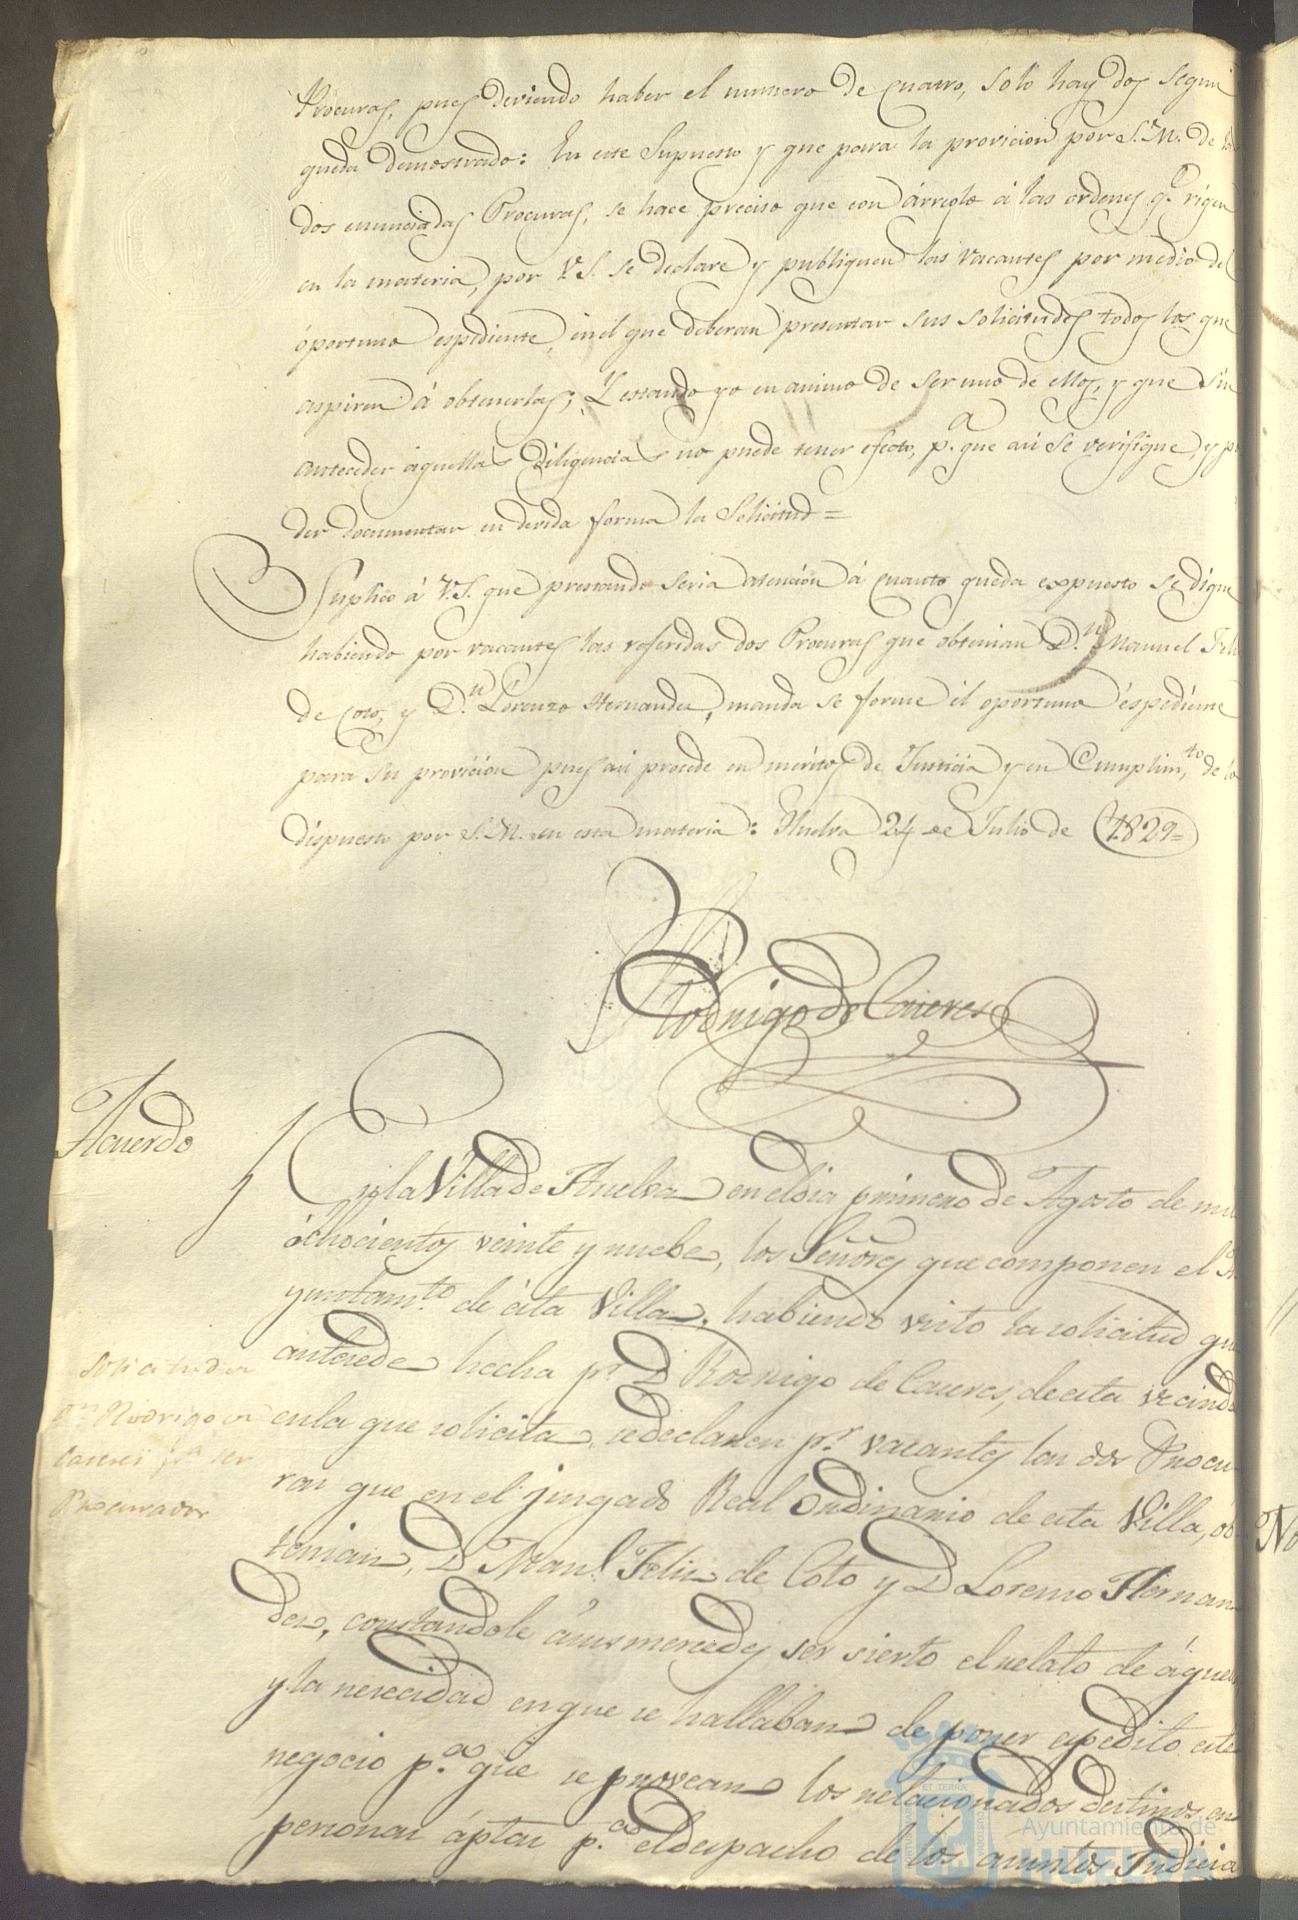 Procuras, pues deviendo haber el numero de cuatro, solo hay dos segun
queda demostrado: En este Supuesto y que para la provicion por S.M. de las
dos enunciadas Procuras, se hace preciso que con árreglo á las ordenes qe. rigen
en la materia, por V.S. se declare y publiquen las vacantes por medio del
óportuno espediente, en él que deberan presentar sus solicitudes todos los que
aspiren á obtenerlas; Y estando yo en animo de ser uno de ellos, y que sin
anteceder áquellas diligencias no puede tener efecto, pa. que asi se verifique, y po
der documentar en devida forma la Solicitud =
Suplico á V.S. que prestando seria atención á cuanto queda expuesto se digne
habiendo por vacantes las referidas dos Procuras que obtenian Dn. Manuel Feli
de Coto, y Dn. Lorenzo Hernandez, manda se forme él oportuno éspediente
para su provicion pues asi procede en méritos de Justicia y en Cumplimto. de lo
dispuesto por S.M. en esta materia: Huelva 24 de Julio de 1829=
Rodrigo de Caceres
Acuerdo
En la Villa de Huelva en el dia primero de Agosto de mil
óchocientos veinte y nuebe, los Señores que componen el A
yuntamto. de ésta Villa, habiendo visto la solicitud que
antecede hecha pr. D Rodrigo de Caceres, de esta vecindad
en la que solicita, se declaren pr. vacantes las dos Procu-
ras que en el juzgado Real Ordinario de esta Villa, ob
tenian, D Manl. Feliz de Coto y D Lorenzo Hernan
dez, constandole á sus mercedes ser sierto el relato de áquel
y la nececidad en que se hallaban de poner espedito este
negocio pa. que se provean los relacionados destinos en
personas áptas pa. el despacho de los asuntos Judicia
Solicitud de
Dn. Rodrigo de
Caceres pa. ser
Procurador
No
Ayuntamiento de
HUELVA